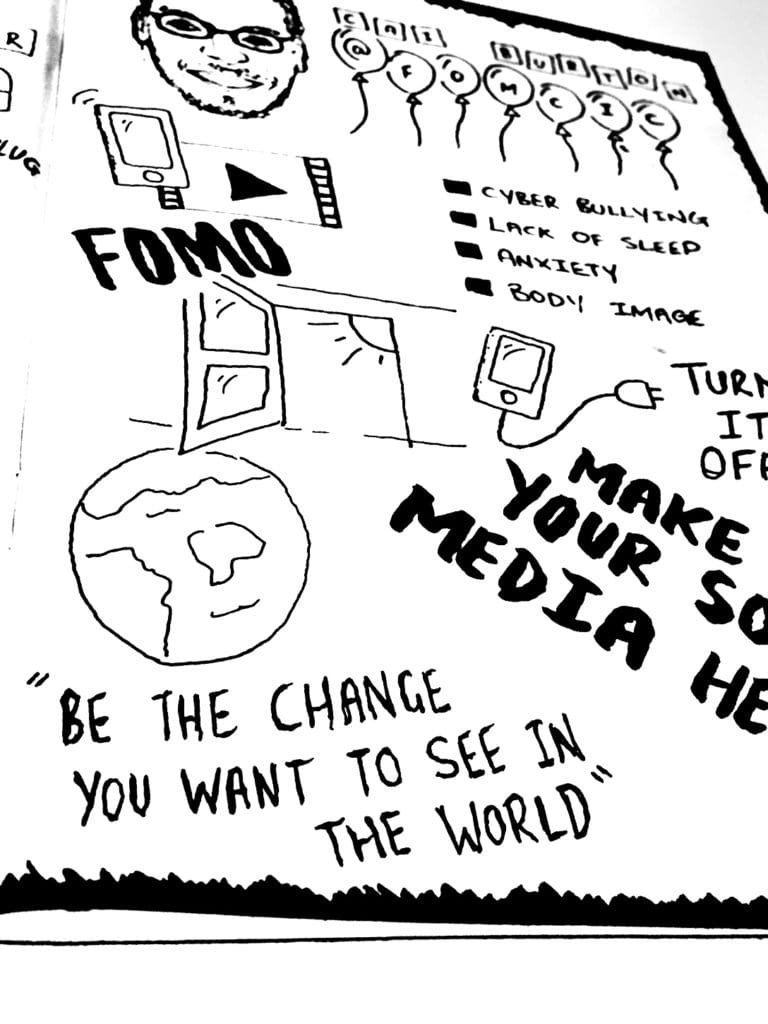 R
CAI BURTON
@FOMCIC
LUG
FOMO
CYBER BULLYING
LACK OF SLEEP
ANXIETY
BODY IMAGE
TURN
IT
OFF
MAKE
YOUR SO
MEDIA HE
"BE THE CHANGE
YOU WANT TO SEE IN
THE WORLD"